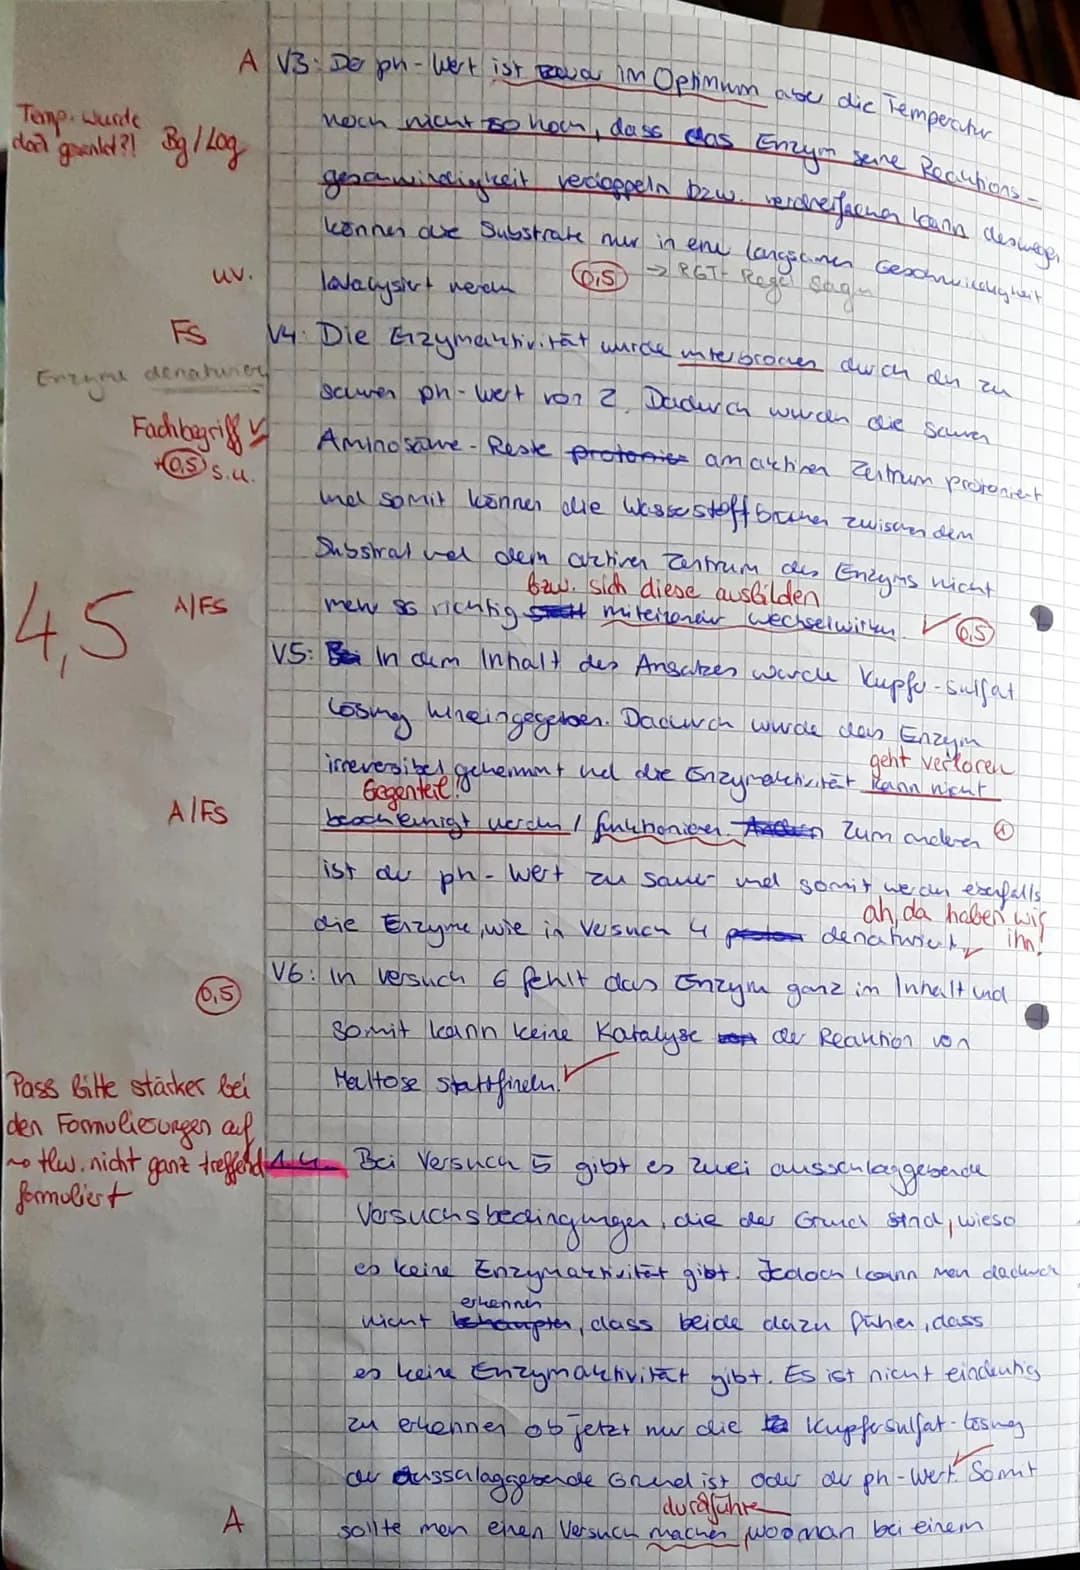 A V3: De ph-Wert ist zwar im Optimum aber die Temperatur
Temp. wurde
doch gesenkt?! Bg/Log
noch nicht so hoch, dass das Enzym seine Reaktions-
geschwindigkeit verdoppeln bzw. verdreifachen kann deswegen
können die Substrate nur in ene langsamen Geschwindigkeit
uv. katalysiert werden (0,5) → RGT-Regel sagn
FS V4: Die Enzymaktivität wurde unterbrochen durch den zu
Enzyme denaturieren
sauren ph-Wert von 2. Dadurch wurden die sauren
Fachbegriff ✓
+(0,5) s.u.
Aminosäure-Reste protonie am aktiven Zentrum protoniert
und somit können die Wasserstoffbrücken zwischen dem
Substrat und dem aktiven Zentrum des Enzyms nicht
bzw. sich diese ausbilden
4,5 A/FS mehr so richtig miteinander wechselwirken. ✓ (0,5)
V5: Bei In dem Inhalt des Ansatzes wurde Kupfer-sulfat
Lösung hineingegeben. Dadurch wurde das Enzym
geht verloren
irreversibel gehemmt und die Enzymaktivität kann nicht
Gegenteil!
A/FS beschleunigt werden / funktionieren. Zum anderen (1)
ist der ph-Wert zu sauer und somit werden ebenfalls
ah, da haben wir
ihn!
die Enzyme, wie in Versuch 4 denaturiert ✓
V6: In Versuch 6 fehlt das Enzym ganz im Inhalt und
(0,5)
somit kann keine Katalyse von der Reaktion von
Maltose stattfinden. ✓
Pass bitte stärker bei
den Formulierungen auf
~> tlw. nicht ganz treffend
formuliert
1.4 Bei Versuch 5 gibt es zwei ausschlaggebende
Versuchsbedingungen, die der Grund sind, wieso
es keine Enzymaktivität gibt. Jedoch kann man dadurch
erkennen
nicht behaupten, dass beide dazu führen, dass
es keine Enzymaktivität gibt. Es ist nicht eindeutig
zu erkennen ob jetzt nur die Kupfersulfat-Lösung
der ausschlaggebende Grund ist oder der ph-Wert. ✓ Somit
durchführe
A sollte man einen Versuch machen, wo man bei einem